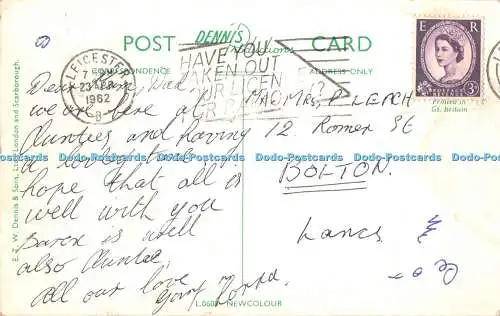 POST CARD
DENNIS
Productions
CORRESPONDENCE
ADDRESS ONLY
LEICESTER
7
23 APR
1962
B
HAVE YOU
TAKEN OUT
YOUR LICENCE
E R
POSTAGE REVENUE
3D
Printed in
Gt. Britain
Dear
we are here at
Aunties and having
a lovely time
hope that all is
well with you
is well
also Auntie.
All our love
Mr & Mrs P LEACH
12. Romer St
BOLTON.
Lancs
E. T. W. Dennis & Sons, Ltd., London and Scarborough.
L.0608
NEWCOLOUR
Dodo-Postcards Dodo-Postcards Dodo-Postcards Dodo-Postcards Dodo-Postcards